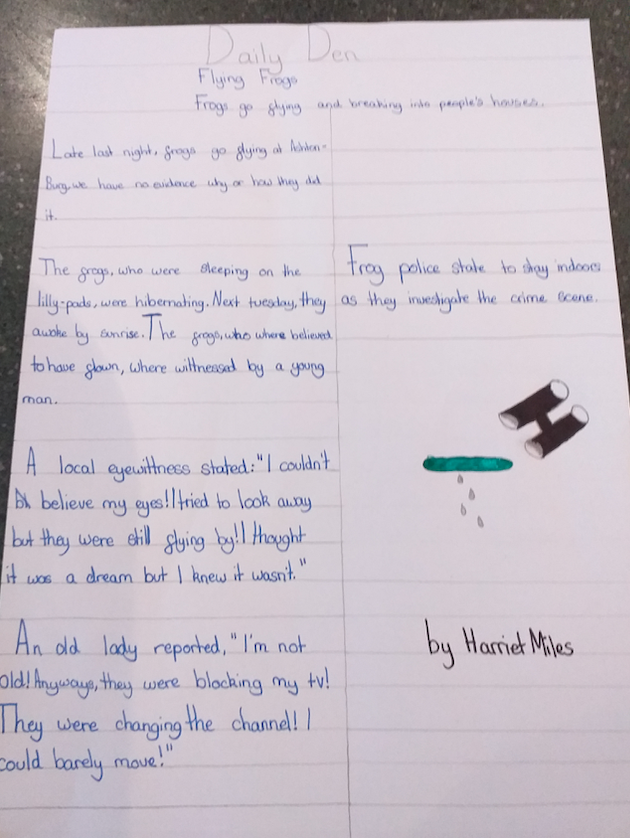 Daily Den
Flying Frogs
Frogs go flying and breaking into people's houses.
Late last night, frogs go flying at Ashton-
Burg, we have no evidence why or how they did
it.
The frogs, who were sleeping on the
lilly-pads, were hibernating. Next tuesday, they
awoke by sunrise. The frogs, who where believed
to have flown, where wittnessed by a young
man.
A local eyewittness stated: "I couldn't
believe my eyes! I tried to look away
but they were still flying by! I thought
it was a dream but I knew it wasn't."
An old lady reported, "I'm not
old! Anyways, they were blocking my tv!
They were changing the channel! I
could barely move!"
Frog police state to stay indoors
as they investigate the crime scene.
by Harriet Miles